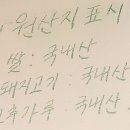 원산지 표시
쌀 : 국내산
돼지고기 : 국내산
고춧가루 : 국내산